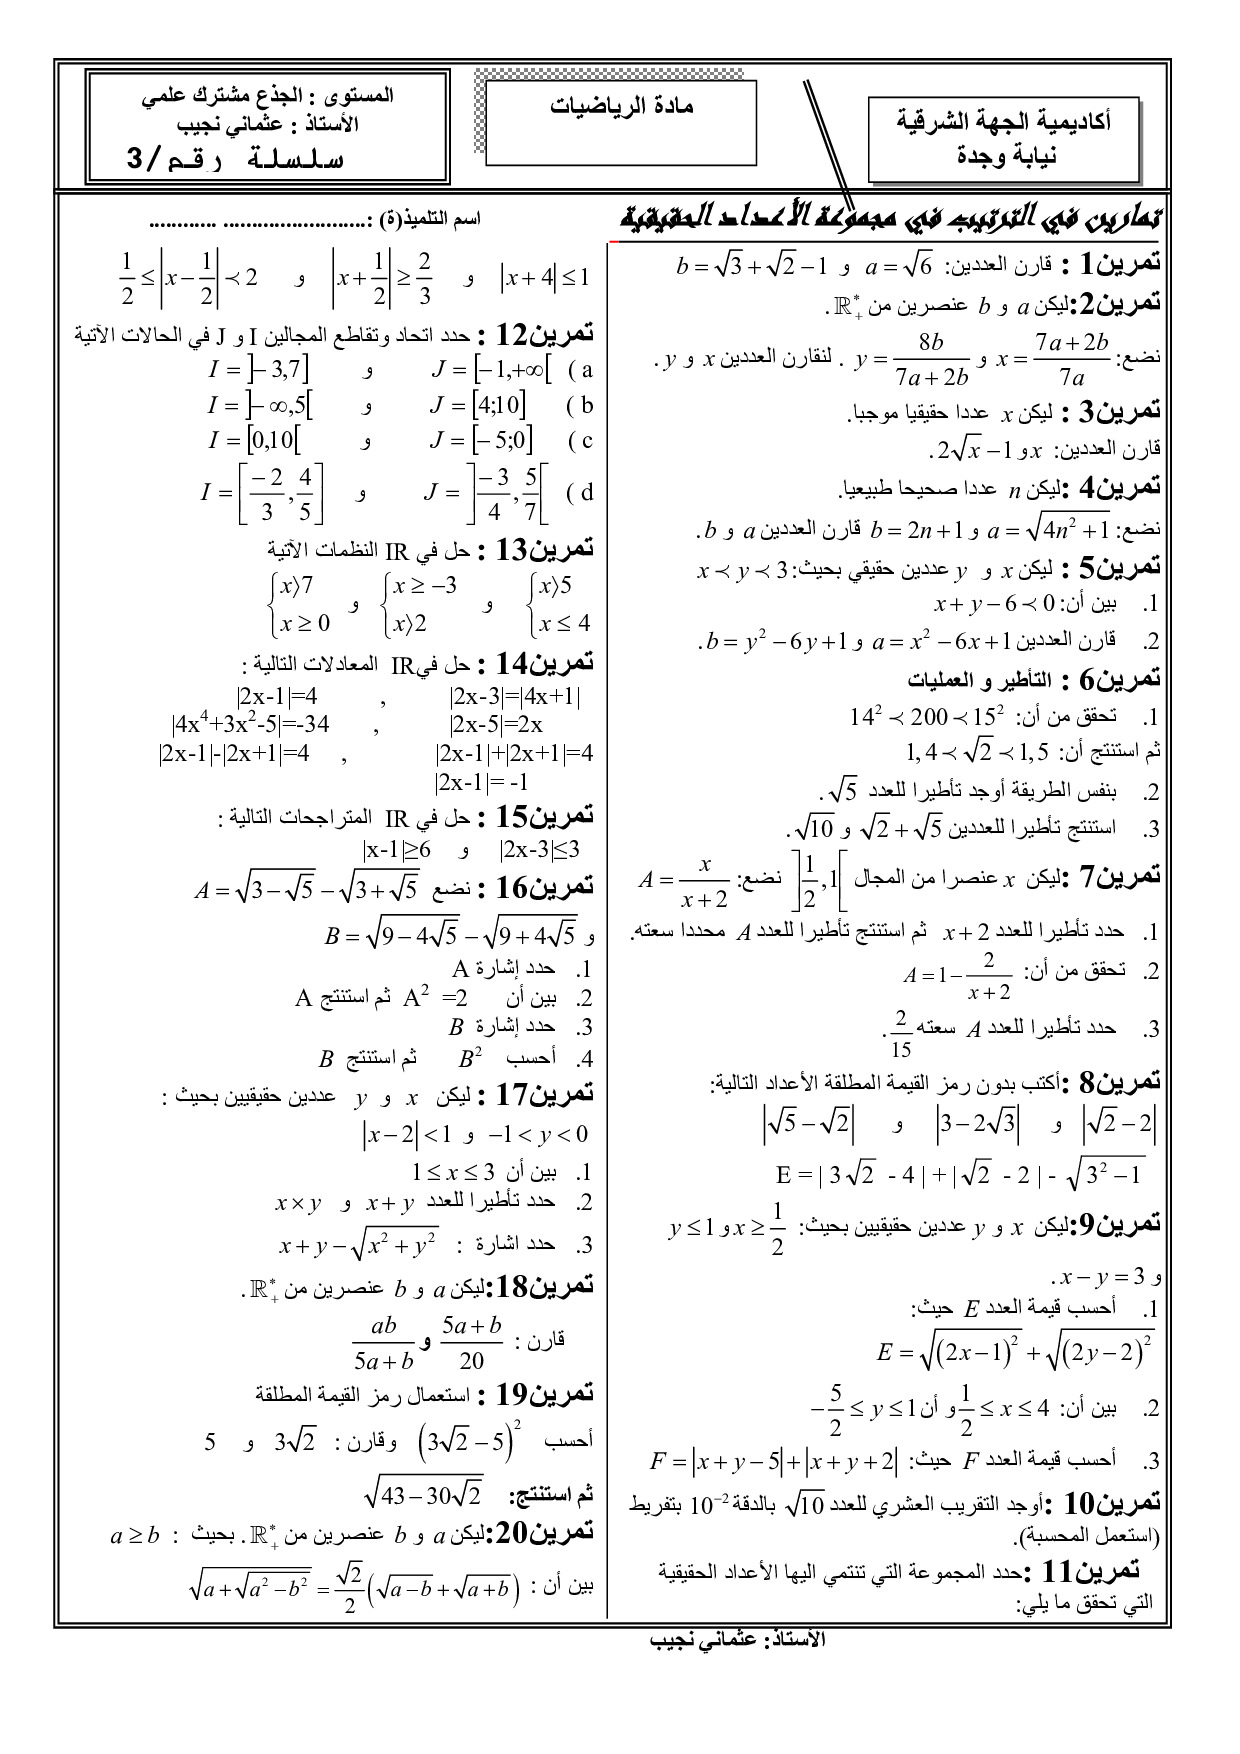 أكاديمية الجهة الشرقية
نيابة وجدة
مادة الرياضيات
المستوى : الجذع مشترك علمي
الأستاذ : عثماني نجيب
سلسلة رقم/3
تمارين في الترتيب في مجموعة الأعداد الحقيقية
اسم التلميذ(ة) :......................... ............
تمرين1 : قارن العددين: a = √6 و b = √3 + √2 − 1
تمرين2:ليكن a و b عنصرين من ℝ₊* .
نضع: x = (7a + 2b)/(7a) و y = 8b/(7a + 2b) . لنقارن العددين x و y .
تمرين3 : ليكن x عددا حقيقيا موجبا.
قارن العددين: x و 2√x − 1 .
تمرين4 :ليكن n عددا صحيحا طبيعيا.
نضع: a = √(4n² + 1) و b = 2n + 1 قارن العددين a و b .
تمرين5 : ليكن x و y عددين حقيقي بحيث: x ≺ y ≺ 3
1. بين أن: x + y − 6 ≺ 0
2. قارن العددين a = x² − 6x + 1 و b = y² − 6y + 1 .
تمرين6 : التأطير و العمليات
1. تحقق من أن: 14² ≺ 200 ≺ 15²
ثم استنتج أن: 1,4 ≺ √2 ≺ 1,5
2. بنفس الطريقة أوجد تأطيرا للعدد √5 .
3. استنتج تأطيرا للعددين √2 + √5 و √10 .
تمرين7 :ليكن x عنصرا من المجال ]1/2 ,1[ نضع: A = x/(x + 2)
1. حدد تأطيرا للعدد x + 2 ثم استنتج تأطيرا للعدد A محددا سعته.
2. تحقق من أن: A = 1 − 2/(x + 2)
3. حدد تأطيرا للعدد A سعته 2/15 .
تمرين8 :أكتب بدون رمز القيمة المطلقة الأعداد التالية:
|√2 − 2| و |3 − 2√3| و |√5 − √2|
E = | 3√2 - 4 | + | √2 - 2 | - √(3² − 1)
تمرين9:ليكن x و y عددين حقيقيين بحيث: x ≥ 1/2 و y ≤ 1
و x − y = 3 .
1. أحسب قيمة العدد E حيث:
E = √((2x − 1)²) + √((2y − 2)²)
2. بين أن: 1/2 ≤ x ≤ 4 و أن −5/2 ≤ y ≤ 1
3. أحسب قيمة العدد F حيث: F = |x + y − 5| + |x + y + 2|
تمرين10 :أوجد التقريب العشري للعدد √10 بالدقة 10⁻² بتفريط
(استعمل المحسبة).
تمرين11 :حدد المجموعة التي تنتمي اليها الأعداد الحقيقية
التي تحقق ما يلي:
|x + 4| ≤ 1 و |x + 1/2| ≥ 2/3 و 1/2 ≤ |x − 1/2| ≺ 2
تمرين12 : حدد اتحاد وتقاطع المجالين I و J في الحالات الآتية
a ) J = [−1,+∞[ و I = ]−3,7]
b ) J = [4;10] و I = ]−∞,5[
c ) J = [−5;0] و I = [0,10[
d ) J = ]−3/4 , 5/7[ و I = [−2/3 , 4/5]
تمرين13 : حل في IR النظمات الآتية
{x⟩5 و {x ≥ −3 و {x⟩7
{x ≤ 4 {x⟩2 {x ≥ 0
تمرين14 : حل فيIR المعادلات التالية :
|2x-3|=|4x+1| , |2x-1|=4
|2x-5|=2x , |4x⁴+3x²-5|=-34
|2x-1|+|2x+1|=4 , |2x-1|-|2x+1|=4
|2x-1|= -1
تمرين15 : حل في IR المتراجحات التالية :
|2x-3|≤3 و |x-1|≥6
تمرين16 : نضع A = √(3 − √5) − √(3 + √5)
و B = √(9 − 4√5) − √(9 + 4√5)
1. حدد إشارة A
2. بين أن A² =2 ثم استنتج A
3. حدد إشارة B
4. أحسب B² ثم استنتج B
تمرين17 : ليكن x و y عددين حقيقيين بحيث :
−1 < y < 0 و |x − 2| < 1
1. بين أن 1 ≤ x ≤ 3
2. حدد تأطيرا للعدد x + y و x × y
3. حدد اشارة : x + y − √(x² + y²)
تمرين18:ليكن a و b عنصرين من ℝ₊* .
قارن : (5a + b)/20 و ab/(5a + b)
تمرين19 : استعمال رمز القيمة المطلقة
أحسب (3√2 − 5)² وقارن : 3√2 و 5
ثم استنتج: √(43 − 30√2)
تمرين20:ليكن a و b عنصرين من ℝ₊* . بحيث : a ≥ b
بين أن : √(a + √(a² − b²)) = √2/2 (√(a − b) + √(a + b))
الأستاذ: عثماني نجيب